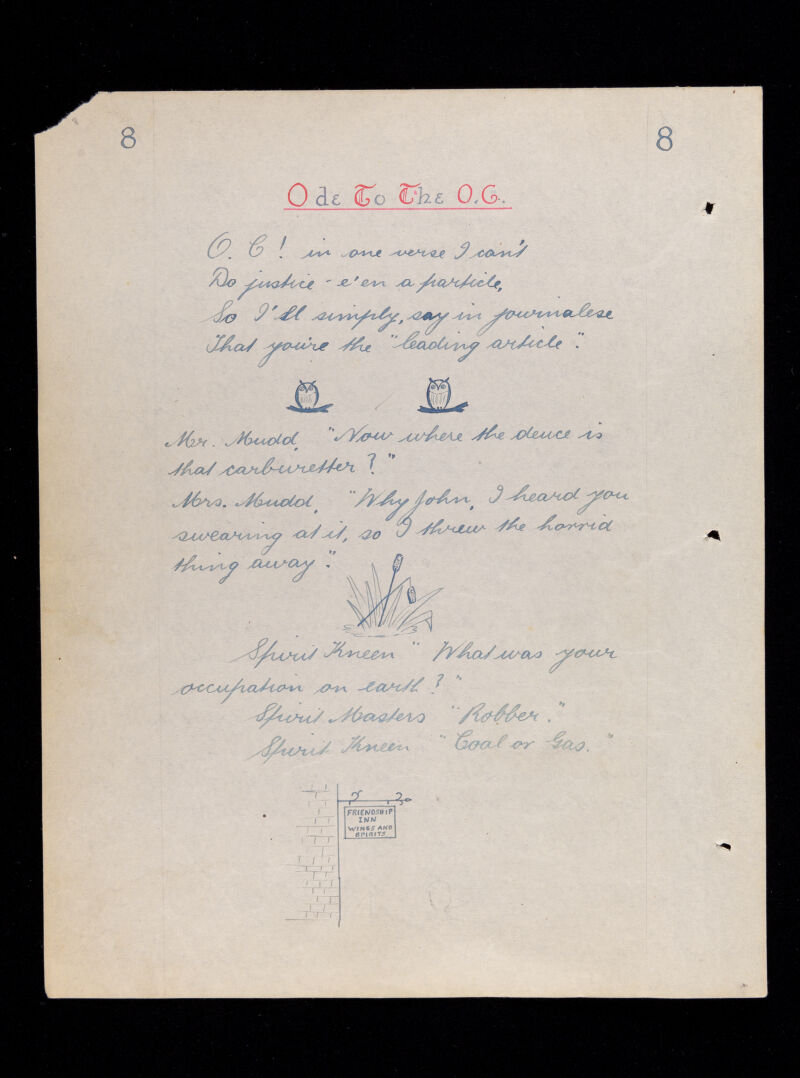 8 8
Ode To The O.C.
O. C! in one verse I can't
Do justice - e'en a particle,
So I'll simply, say in journalese
That you're the "leading article".
Mr. Mudd, "Now where the deuce is
that carburetter?"
Mrs. Mudd, "Why John, I heard you
swearing at it, so I threw the horrid
thing away".
Spirit Kneen "What was your
occupation on earth?"
Spirit Masters "Robber."
Spirit Kneen "Coal or Gas."
FRIENDSHIP
INN
WINES AND
SPIRITS